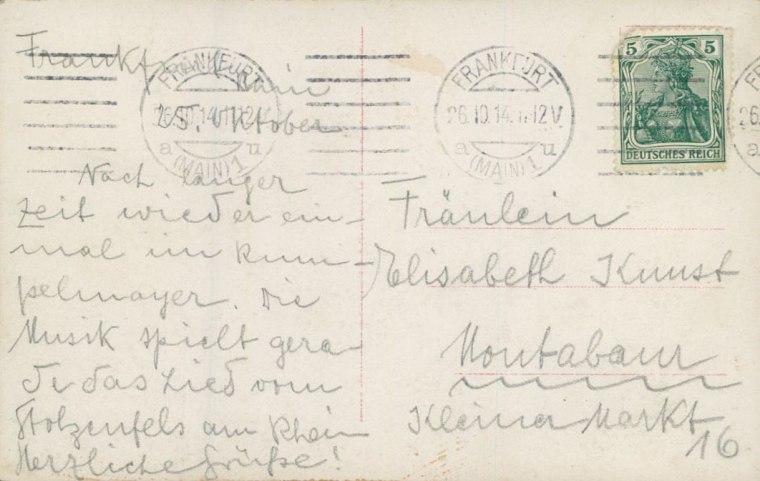 Frankf. Main
25. Oktober
Nach langer
Zeit wieder ein-
mal im Rum-
pelmayer. Die
Musik spielt gera-
de das Lied vom
Stolzenfels am Rhein
Herzliche Grüße!
FRANKFURT
26.10.14.11-12V
a u
(MAIN) 1
FRANKFURT
26.10.14.11-12V
a u
(MAIN) 1
5 5
DEUTSCHES REICH
26
a
Fräulein
Elisabeth Kunst
Montabaur
Kleiner Markt
16